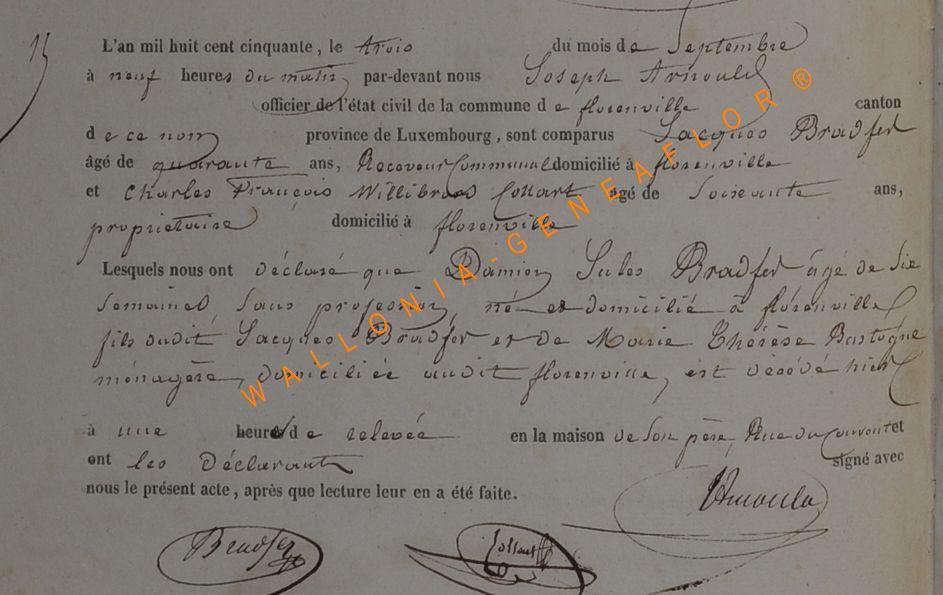 15
L'an mil huit cent cinquante, le trois du mois de Septembre
à neuf heures du matin, par-devant nous Joseph Arnould
officier de l'état civil de la commune de florenville canton
de ce nom province de Luxembourg, sont comparus Jacques Bradfer
âgé de quarante ans, Receveur Communal domicilié à florenville
et Charles François Willibrord Collart âgé de Soixante ans,
propriétaire domicilié à florenville
Lesquels nous ont déclaré que Damien Jules Bradfer âgé de Six
Semaines, sans profession, né et domicilié à florenville,
fils dudit Jacques Bradfer et de Marie Thérèse Bastogne
ménagère, domiciliée audit florenville, est décédé hier
à une heure de relevée en la maison de son père, Rue du Couvent et
ont les Déclarants signé avec
nous le présent acte, après que lecture leur en a été faite.
Arnould
Bradfer Collart
WALLONIA-GENEAFLOR ®